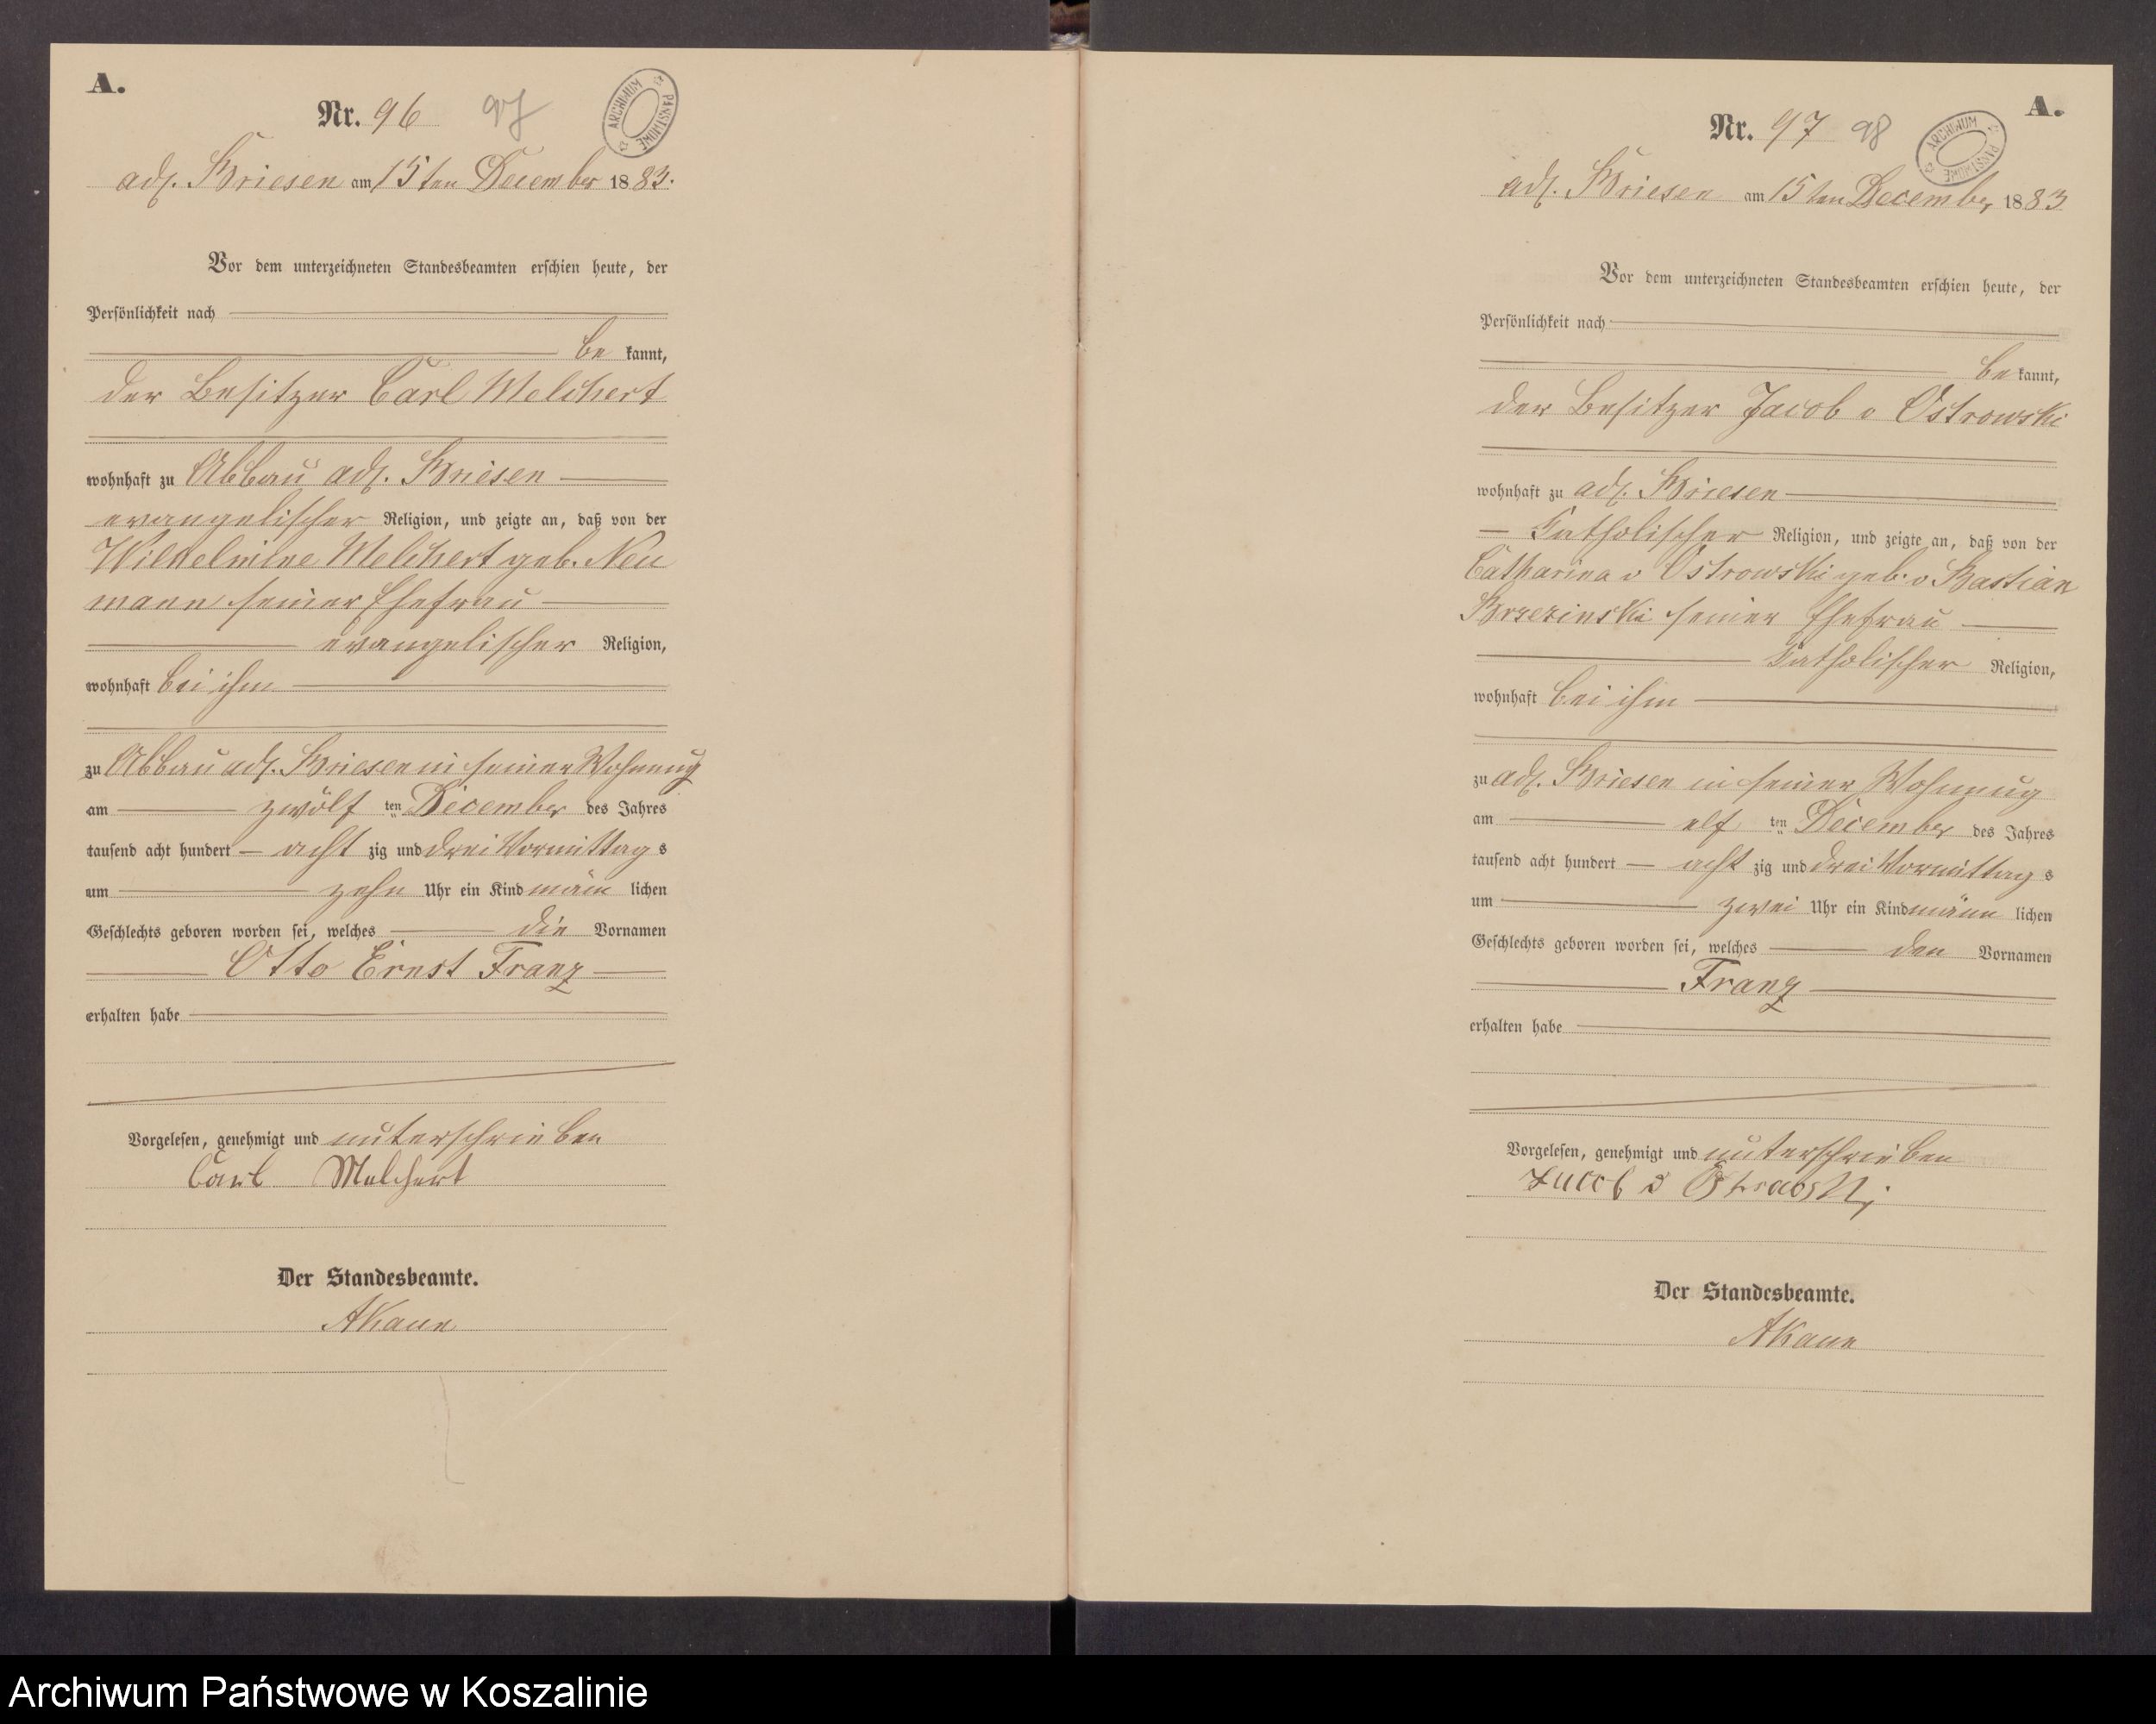 A.
Nr. 96 97
ARCHIWUM PAŃSTWOWE
adl. Briesen am 15ten December 1883.
Vor dem unterzeichneten Standesbeamten erschien heute, der
Persönlichkeit nach
be kannt,
der Besitzer Carl Melchert
wohnhaft zu Abbau adl. Briesen
evangelischer Religion, und zeigte an, daß von der
Wilhelmine Melchert geb. Neu
mann seiner Ehefrau
evangelischer Religion,
wohnhaft bei ihm
zu Abbau adl. Briesen in seiner Wohnung
am zwölf ten December des Jahres
tausend acht hundert acht zig und drei Vormittag s
um zehn Uhr ein Kind männ lichen
Geschlechts geboren worden sei, welches die Vornamen
Otto Ernst Franz
erhalten habe
Vorgelesen, genehmigt und unterschrieben
Carl Melchert
Der Standesbeamte.
A.
Nr. 97 98
ARCHIWUM PAŃSTWOWE
adl. Briesen am 15ten December 1883
Vor dem unterzeichneten Standesbeamten erschien heute, der
Persönlichkeit nach
be kannt,
der Besitzer Jacob v Ostrowski
wohnhaft zu adl. Briesen
katholischer Religion, und zeigte an, daß von der
Catharina v Ostrowski geb. v Bastian
Brzezinski seiner Ehefrau
katholischer Religion,
wohnhaft bei ihm
zu adl. Briesen in seiner Wohnung
am elf ten December des Jahres
tausend acht hundert acht zig und drei Vormittag s
um zwei Uhr ein Kind männ lichen
Geschlechts geboren worden sei, welches den Vornamen
Franz
erhalten habe
Vorgelesen, genehmigt und unterschrieben
Jacob v Ostrowski
Der Standesbeamte.
Archiwum Państwowe w Koszalinie